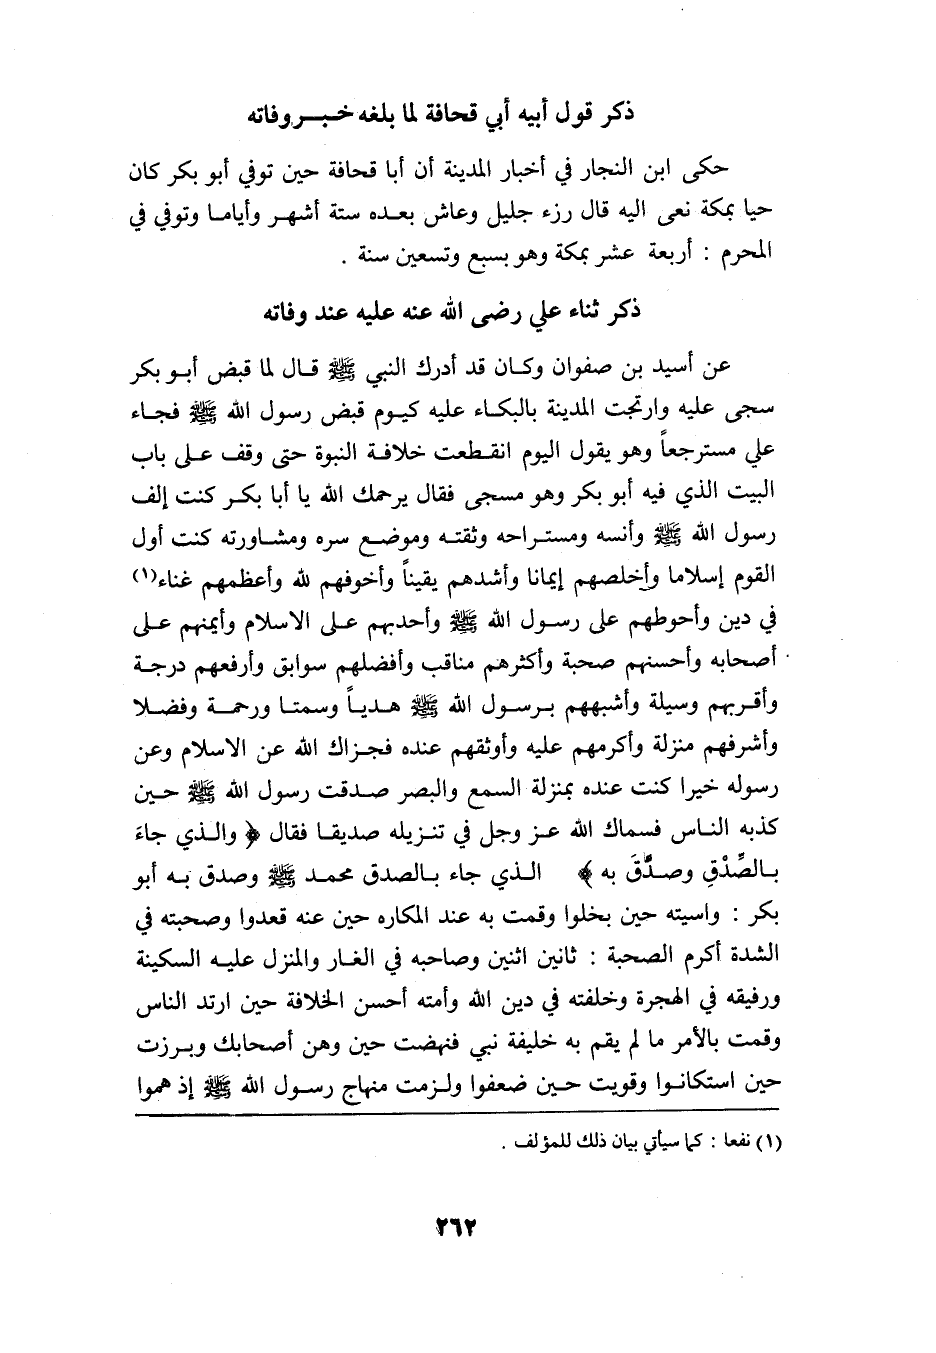 ذكر قول أبيه أبي قحافة لما بلغه خبر وفاته
حكى ابن النجار في أخبار المدينة أن أبا قحافة حين توفي أبو بكر كان
حيا بمكة نعى اليه قال رزء جليل وعاش بعده ستة أشهر وأياما وتوفي في
المحرم : أربعة عشر بمكة وهو بسبع وتسعين سنة .
ذكر ثناء علي رضى الله عنه عليه عند وفاته
عن أسيد بن صفوان وكان قد أدرك النبي ﷺ قال لما قبض أبو بكر
سجى عليه وارتجت المدينة بالبكاء عليه كيوم قبض رسول الله ﷺ فجاء
علي مسترجعاً وهو يقول اليوم انقطعت خلافة النبوة حتى وقف على باب
البيت الذي فيه أبو بكر وهو مسجى فقال يرحمك الله يا أبا بكر كنت إلف
رسول الله ﷺ وأنسه ومستراحه وثقته وموضع سره ومشاورته كنت أول
القوم إسلاما وأخلصهم إيمانا وأشدهم يقيناً وأخوفهم لله وأعظمهم غناء(١)
في دين وأحوطهم على رسول الله ﷺ وأحدبهم على الاسلام وأيمنهم على
أصحابه وأحسنهم صحبة وأكثرهم مناقب وأفضلهم سوابق وأرفعهم درجة
وأقربهم وسيلة وأشبههم برسول الله ﷺ هدياً وسمتا ورحمة وفضلا
وأشرفهم منزلة وأكرمهم عليه وأوثقهم عنده فجزاك الله عن الاسلام وعن
رسوله خيرا كنت عنده بمنزلة السمع والبصر صدقت رسول الله ﷺ حين
كذبه الناس فسماك الله عز وجل في تنزيله صديقا فقال ﴿ والذي جاءَ
بالصِّدْقِ وصدَّقَ به ﴾ الذي جاء بالصدق محمد ﷺ وصدق به أبو
بكر : واسيته حين بخلوا وقمت به عند المكاره حين عنه قعدوا وصحبته في
الشدة أكرم الصحبة : ثانين اثنين وصاحبه في الغار والمنزل عليه السكينة
ورفيقه في الهجرة وخلفته في دين الله وأمته أحسن الخلافة حين ارتد الناس
وقمت بالأمر ما لم يقم به خليفة نبي فنهضت حين وهن أصحابك وبرزت
حين استكانوا وقويت حين ضعفوا ولزمت منهاج رسول الله ﷺ إذ هموا
(١) نفعا : كما سيأتي بيان ذلك للمؤلف .
٢٦٢